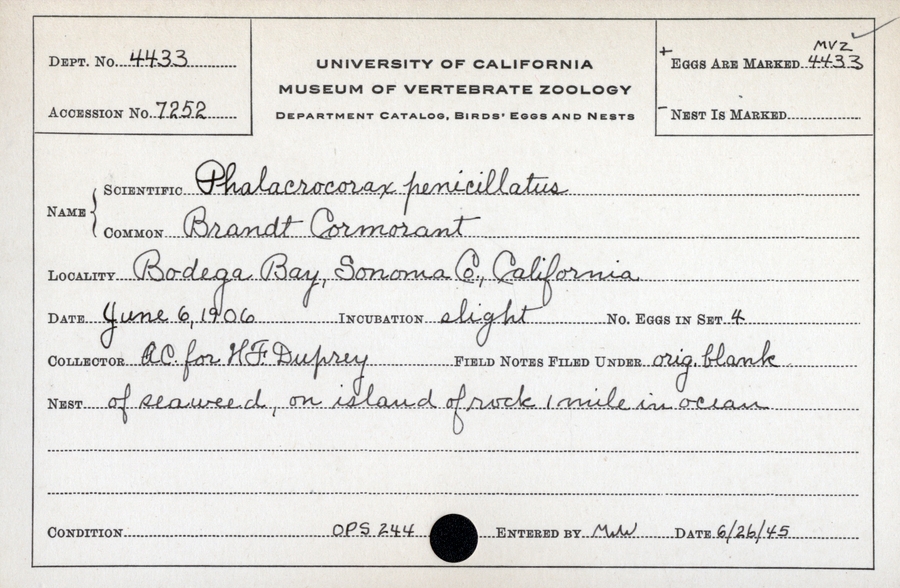 MVZ
DEPT. NO. 4433 UNIVERSITY OF CALIFORNIA + EGGS ARE MARKED 4433
MUSEUM OF VERTEBRATE ZOOLOGY
ACCESSION NO. 7252 DEPARTMENT CATALOG, BIRDS' EGGS AND NESTS - NEST IS MARKED
NAME { SCIENTIFIC Phalacrocorax penicillatus
COMMON Brandt Cormorant
LOCALITY Bodega Bay, Sonoma Co., California
DATE June 6, 1906 INCUBATION slight NO. EGGS IN SET 4
COLLECTOR A.C. for H.F. Duprey FIELD NOTES FILED UNDER orig. blank
NEST of seaweed, on island of rock 1 mile in ocean
CONDITION OPS 244 ENTERED BY MWW DATE 6/26/45